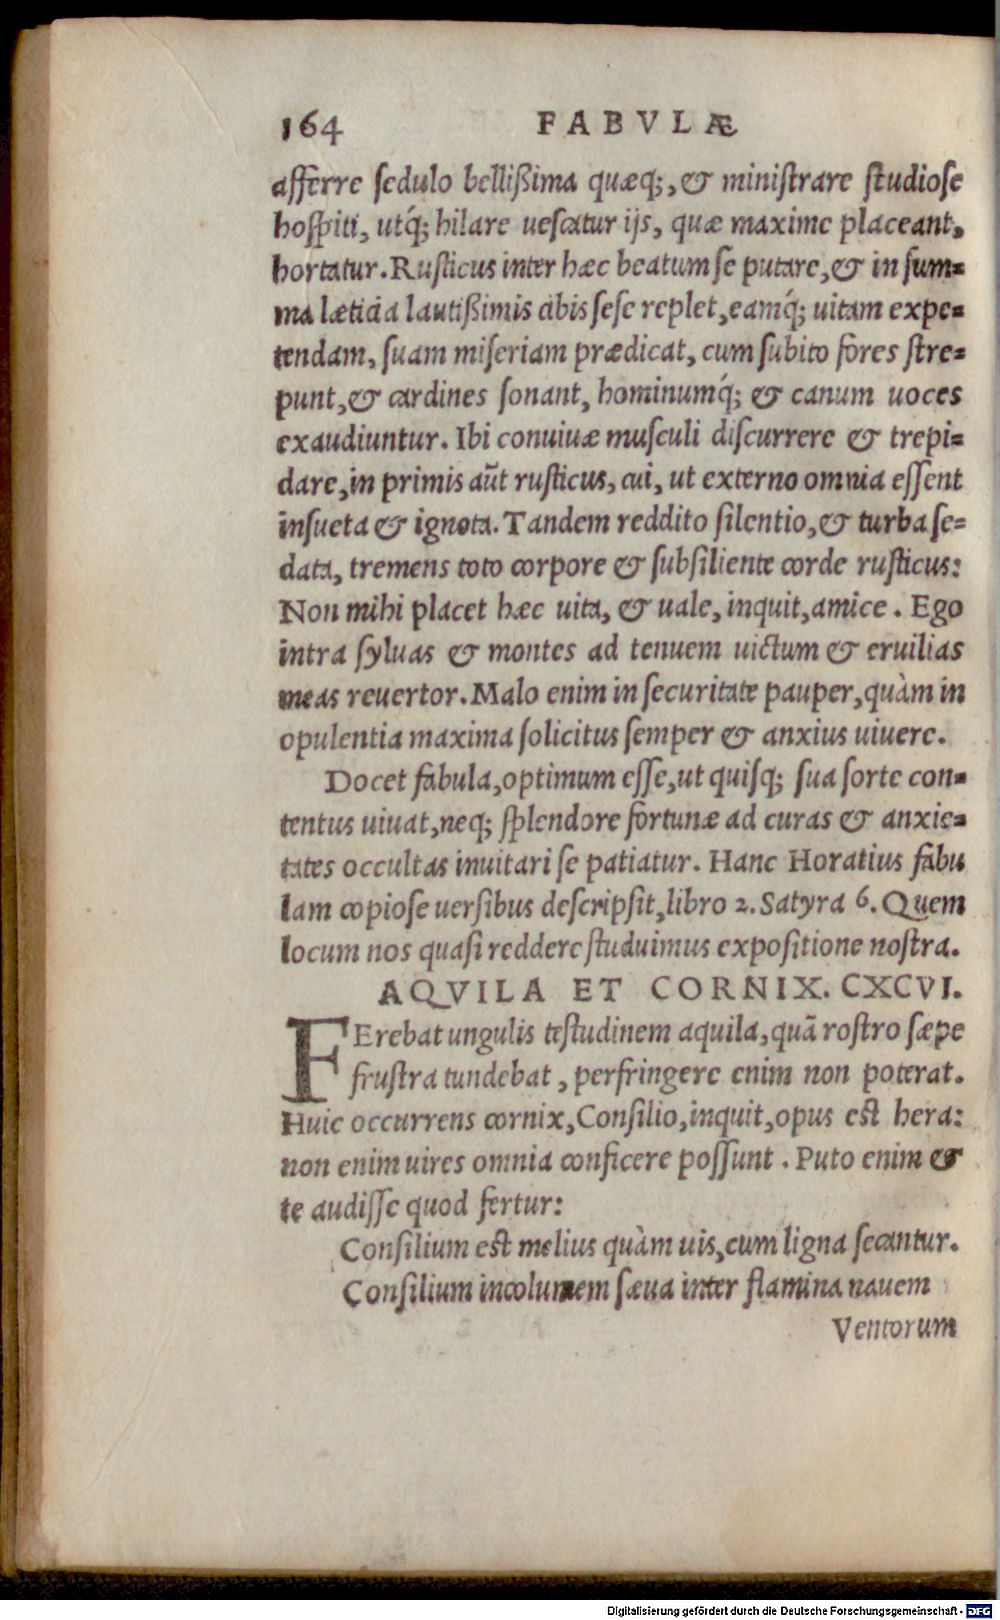 164 FABVLÆ
afferre ſedulo belliſſima quæq;, & miniſtrare ſtudioſe
hoſpiti, utq́; hilare ueſcatur ijs, quæ maxime placeant,
hortatur. Ruſticus inter hæc beatum ſe putare, & in ſum=
ma læticia lautißimis cibis ſeſe replet, eamq́; uitam expe=
tendam, ſuam miſeriam prædicat, cum ſubito fores ſtre=
punt, & cardines ſonant, hominumq́; & canum uoces
exaudiuntur. Ibi conuiuæ muſculi diſcurrere & trepi=
dare, in primis aūt ruſticus, cui, ut externo omnia eſſent
inſueta & ignota. Tandem reddito ſilentio, & turba ſe=
data, tremens toto corpore & ſubſiliente corde ruſticus:
Non mihi placet hæc uita, & uale, inquit, amice. Ego
intra ſyluas & montes ad tenuem uictum & eruilias
meas reuertor. Malo enim in ſecuritate pauper, quàm in
opulentia maxima ſolicitus ſemper & anxius uiuere.
Docet fabula, optimum eſſe, ut quiſq; ſua ſorte con=
tentus uiuat, neq; ſplendore fortunæ ad curas & anxie=
tates occultas inuitari ſe patiatur. Hanc Horatius fabu
lam copioſe uerſibus deſcripſit, libro 2. Satyra 6. Quem
locum nos quaſi reddere ſtuduimus expoſitione noſtra.
AQVILA ET CORNIX. CXCVI.
FErebat ungulis teſtudinem aquila, quā roſtro ſæpe
fruſtra tundebat, perfringere enim non poterat.
Huic occurrens cornix, Conſilio, inquit, opus eſt hera:
non enim uires omnia conficere poſſunt. Puto enim &
te audiſſe quod fertur:
Conſilium eſt melius quàm uis, cum ligna ſecantur.
Conſilium incolumem ſæua inter flamina nauem
Ventorum
Digitalisierung gefördert durch die Deutsche Forschungsgemeinschaft - DFG